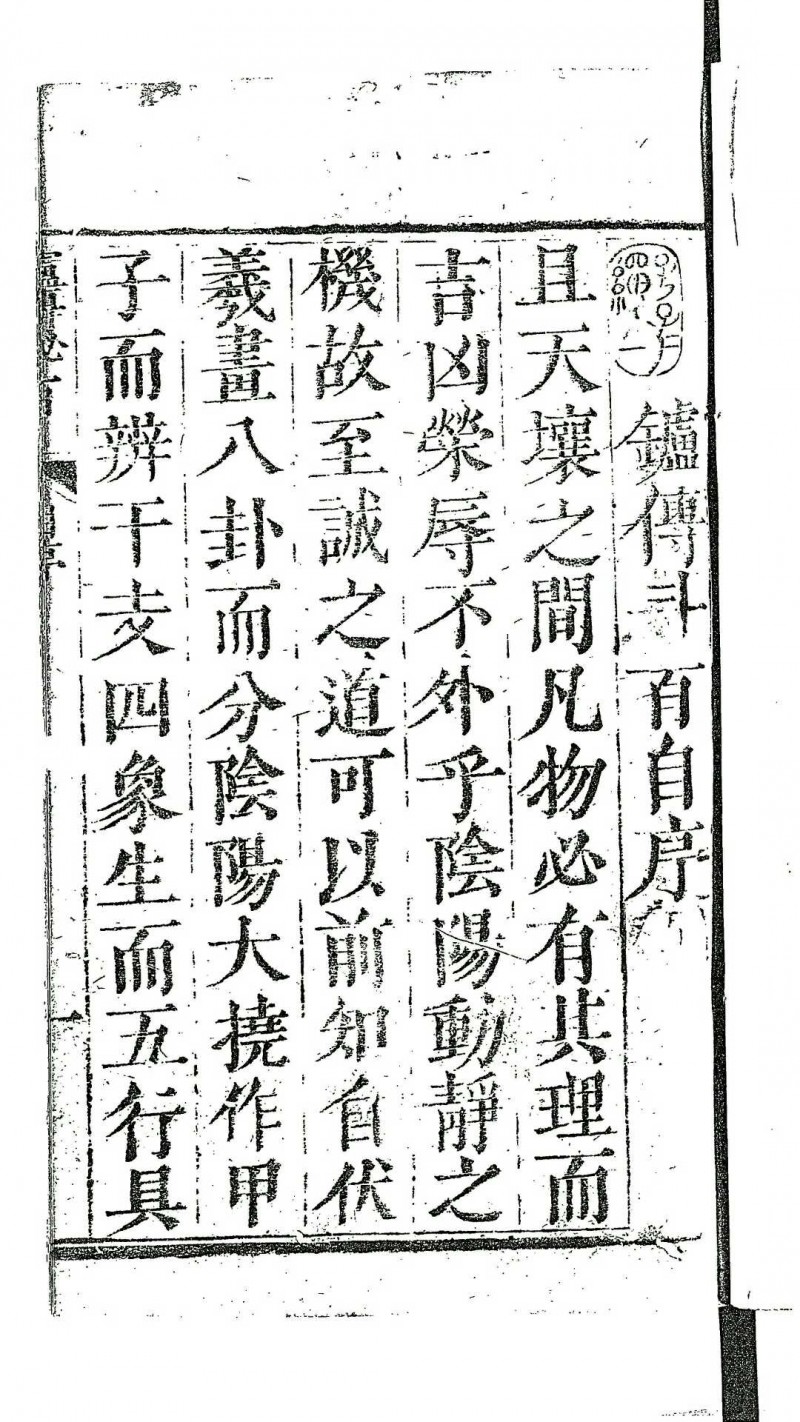 鑪傳斗百自序
且天壤之間凡物必有其理而
吉凶榮辱不外乎陰陽動靜之
機故至誠之道可以前知自伏
羲畫八卦而分陰陽大撓作甲
子而辨干支四象生而五行具
一